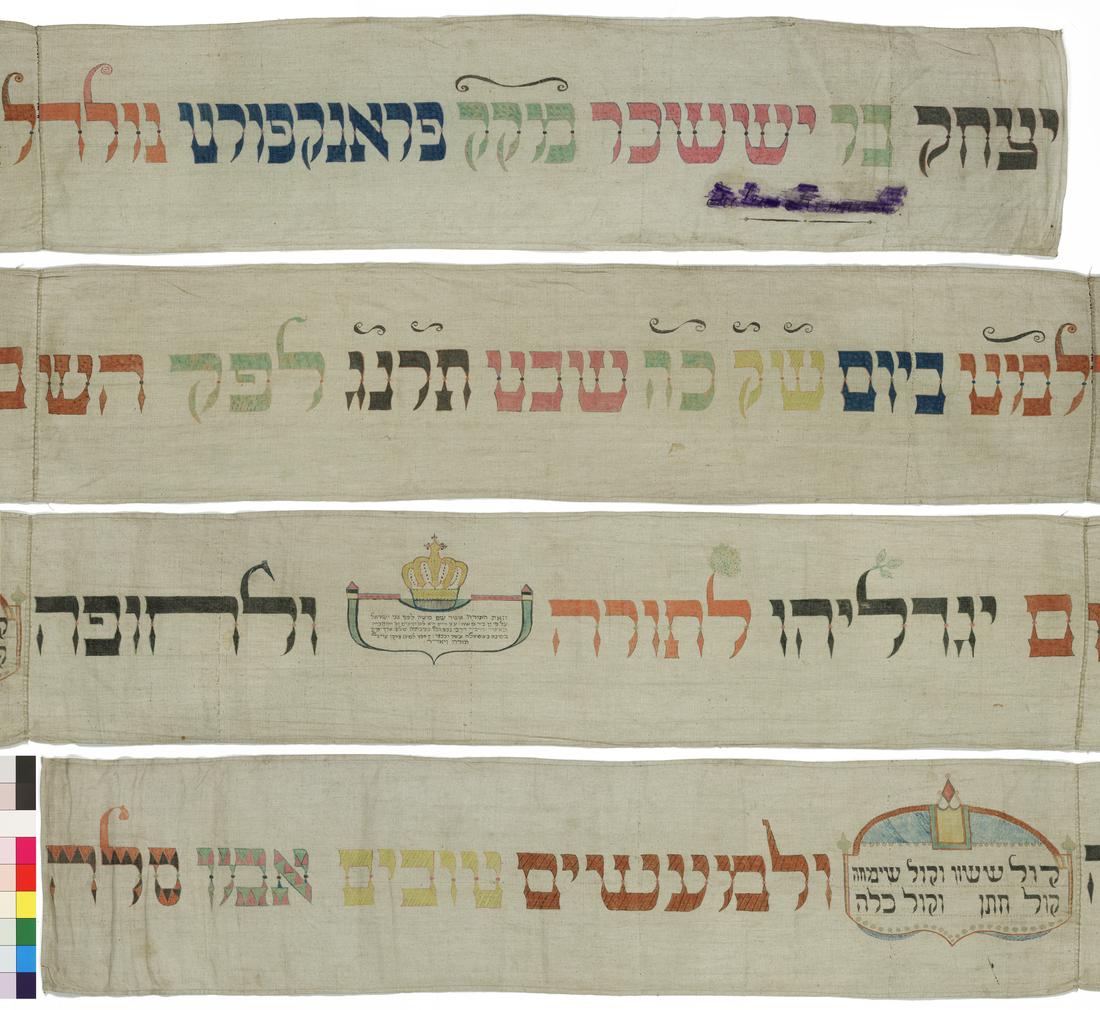 יצחק בר יששכר מקק פראנקפורט נולד
למט ביום שק כה שבט תרנג לפק השם
יגדליהו לתורה
וזאת התורה אשר שם משה לפני בני ישראל
ולחופה
קול ששון וקול שימחה
קול חתן וקול כלה
ולמעשים טובים אמן סלה